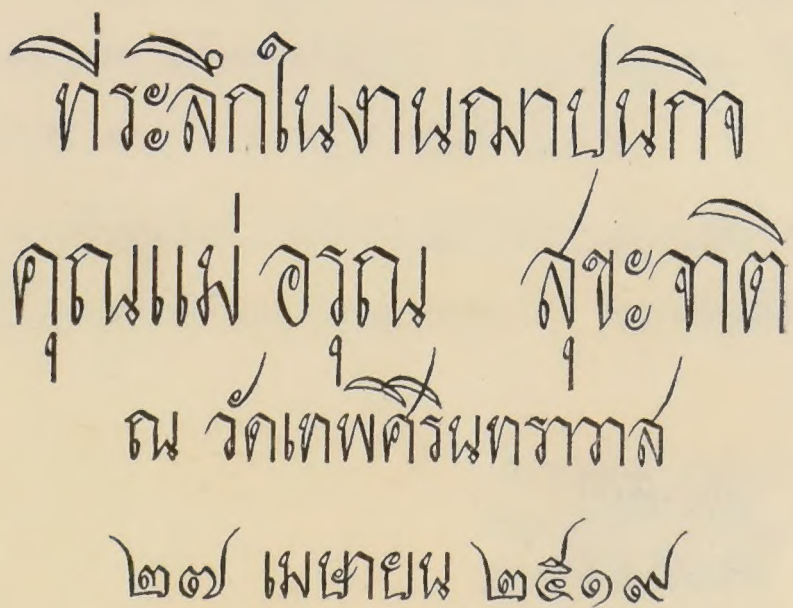 ที่ระลึกในงานฌาปนกิจ
คุณแม่ อรุณ สุขะจาติ
ณ วัดเทพศิรินทราวาส
๒๗ เมษายน ๒๕๑๙